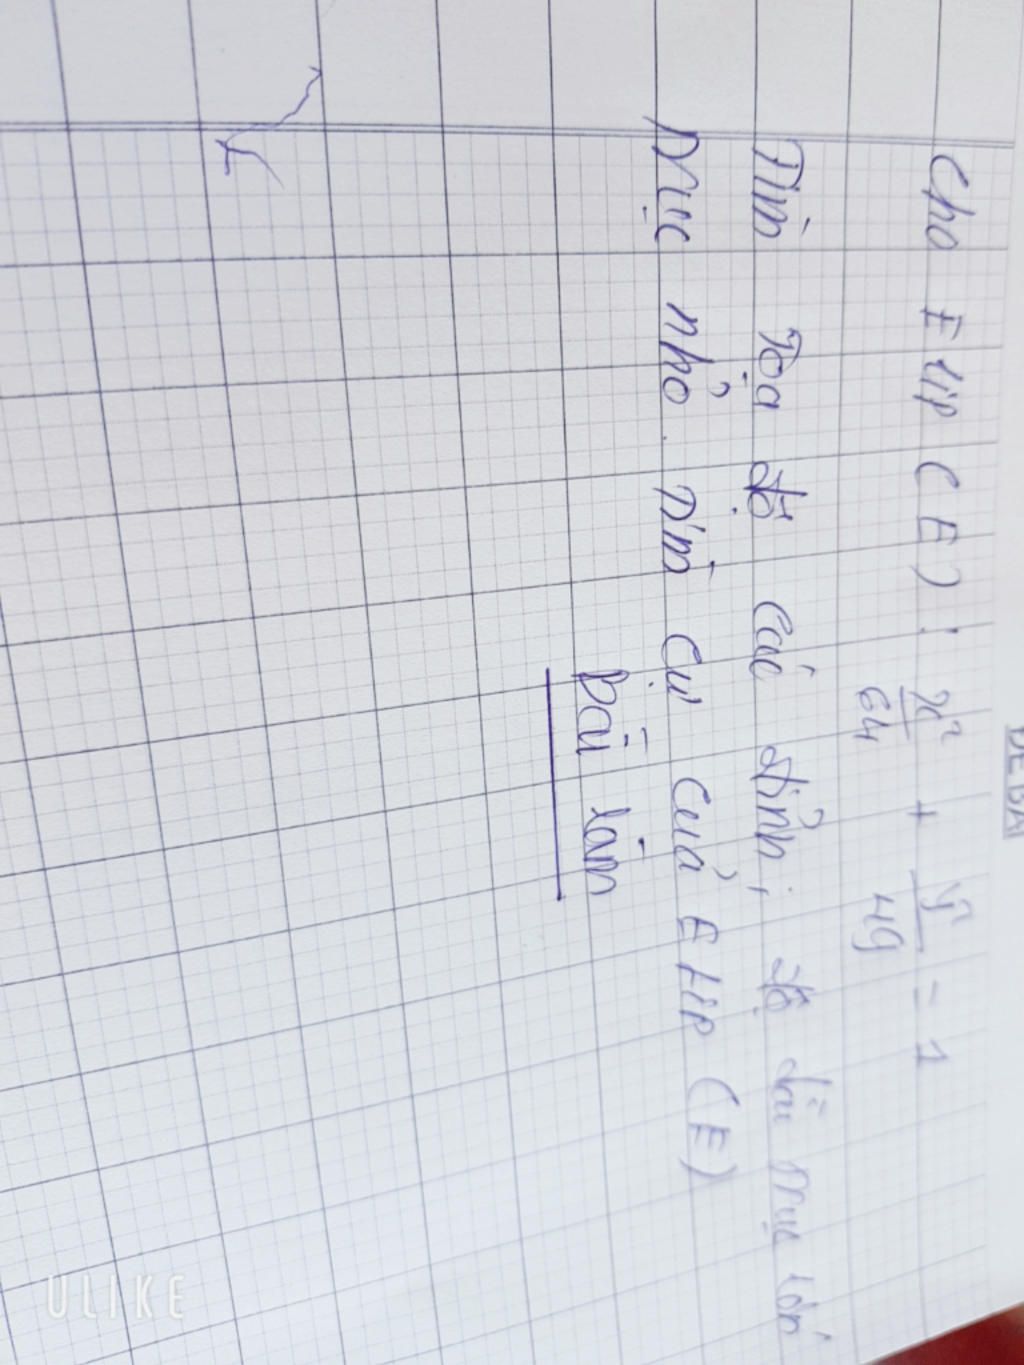 ĐỀ BÀI
Cho Elip (E) : x²/64 + y²/49 = 1
Tìm tọa độ các đỉnh, độ dài trục lớn
trục nhỏ. Tìm cự của Elip (E)
Bài làm
ULIKE